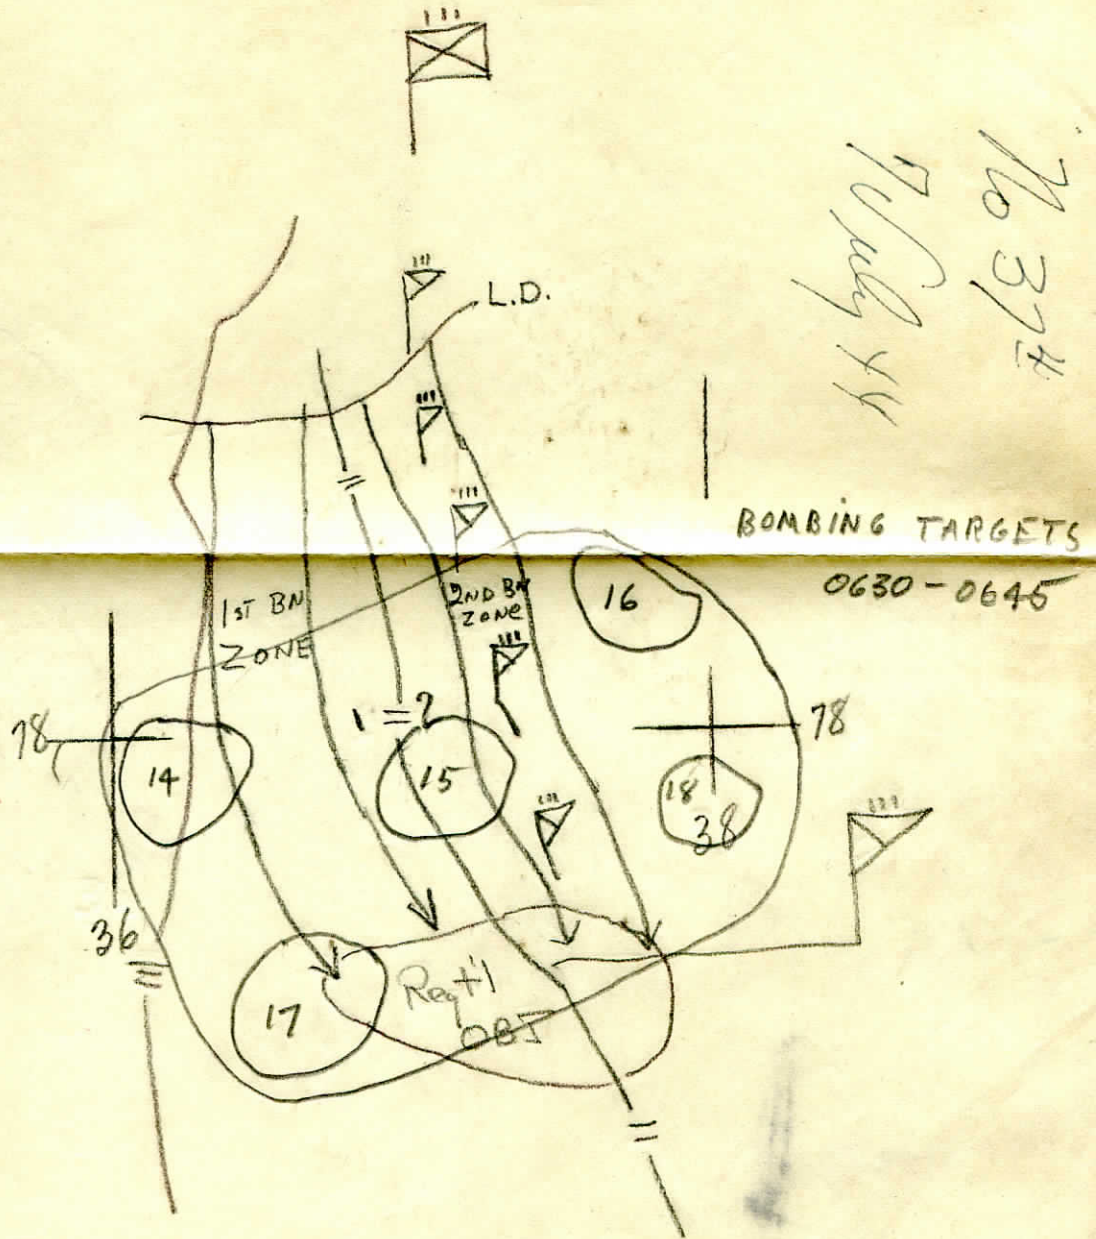 No 37
July 44
L.D.
BOMBING TARGETS
0630 - 0645
1ST BN
ZONE
2ND BN
ZONE
16
1 = 2
78
78
14
15
18
38
36
17
Regt'l
OBJ